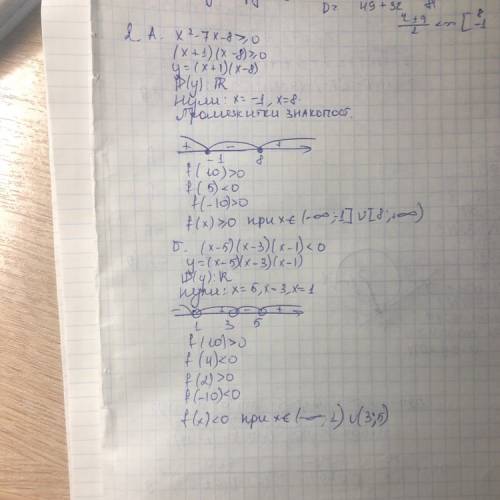 D = 49+32 81
7±9/2 = [8 -1
2 А. x²-7x-8≥0
(x+1)(x-8)≥0
y=(x+1)(x-8)
D(y): R
Нули: x=-1, x=8
Промежутки знакопост.
+ - +
-1 8
f(10)>0
f(5)<0
f(-10)>0
f(x)≥0 при x∈(-∞;-1]∪[8;+∞)
Б. (x-5)(x-3)(x-1)<0
y=(x-5)(x-3)(x-1)
D(y): R
Нули: x=5, x=3, x=1
- + - +
1 3 5
f(10)>0
f(4)<0
f(2)>0
f(-10)<0
f(x)<0 при x∈(-∞;1)∪(3;5)